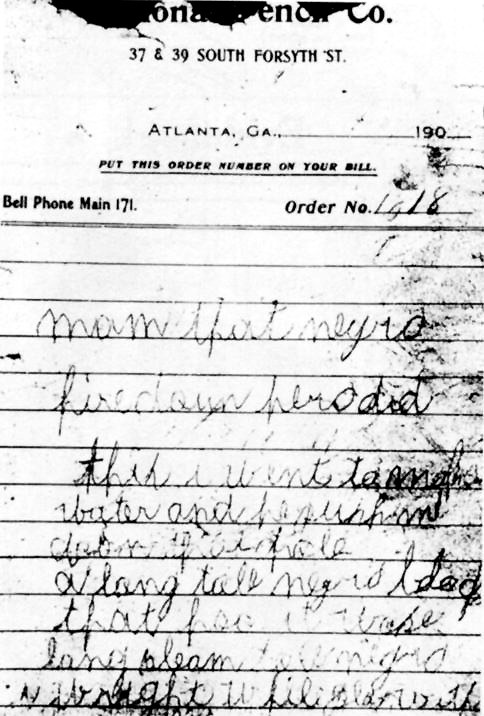 Pencil Co.
37 & 39 SOUTH FORSYTH ST.
ATLANTA, GA., 190
PUT THIS ORDER NUMBER ON YOUR BILL.
Bell Phone Main 171. Order No. 1018
mam that negro
hire down here did
this i went to make
water and he push me
down that hole
a long tall negro black
that hoo it wase
long sleam tall negro
i wright while play with